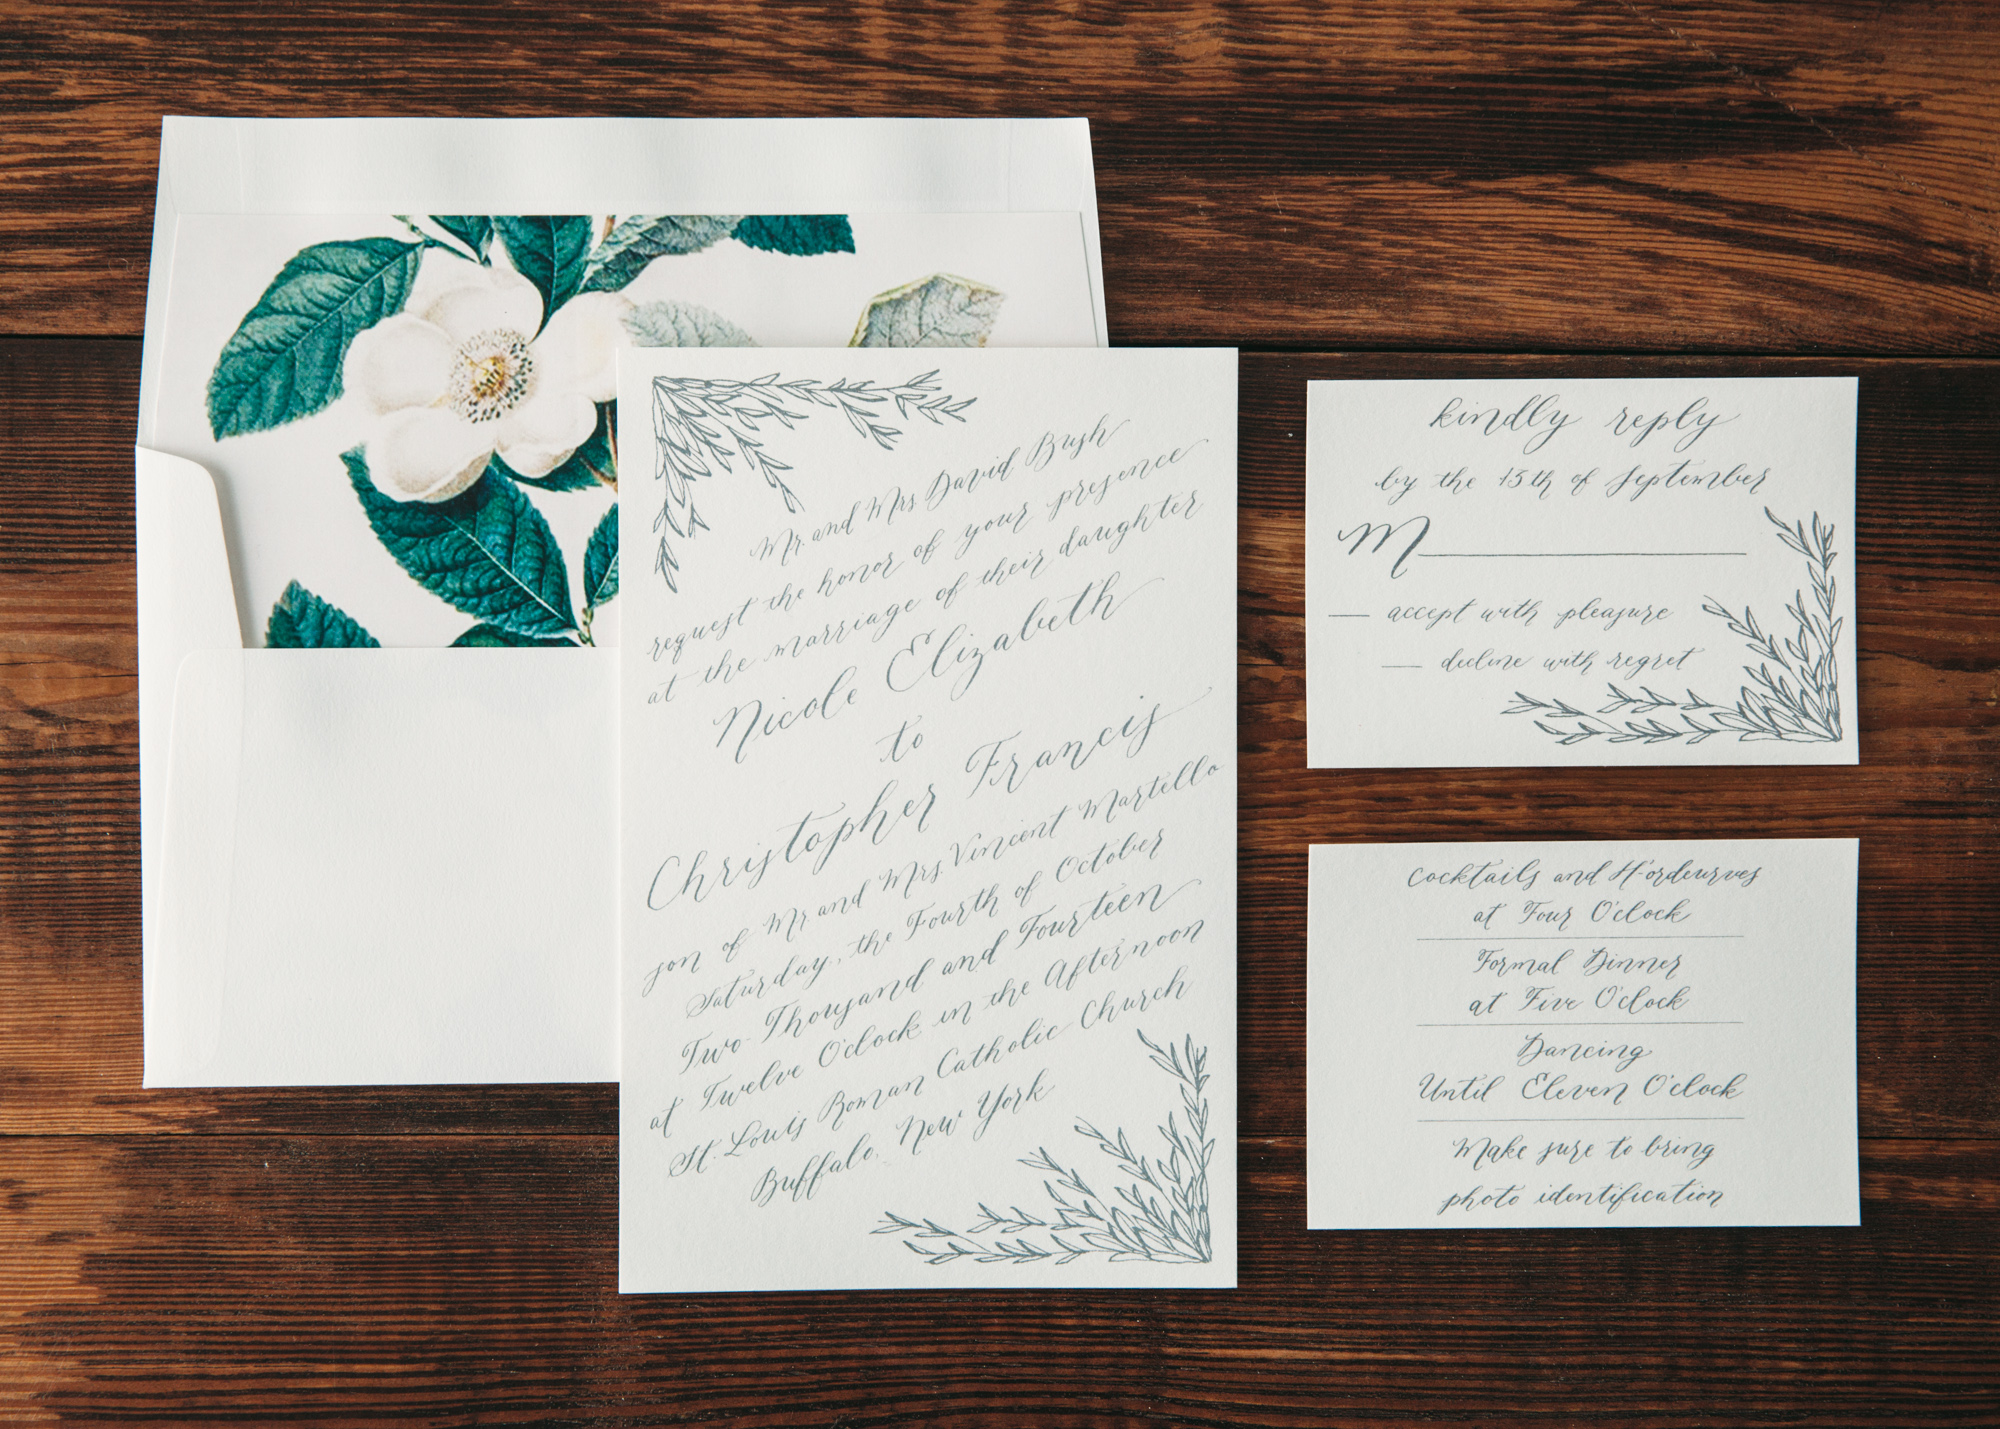 Mr. and Mrs David Bush
request the honor of your presence
at the marriage of their daughter
Nicole Elizabeth
to
Christopher Francis
son of Mr. and Mrs. Vincent Martello
Saturday, the Fourth of October
Two Thousand and Fourteen
at Twelve O'clock in the Afternoon
St. Louis Roman Catholic Church
Buffalo, New York
kindly reply
by the 15th of September
M
accept with pleasure
decline with regret
Cocktails and H'ordeurves
at Four O'clock
Formal Dinner
at Five O'clock
Dancing
Until Eleven O'clock
Make sure to bring
photo identification